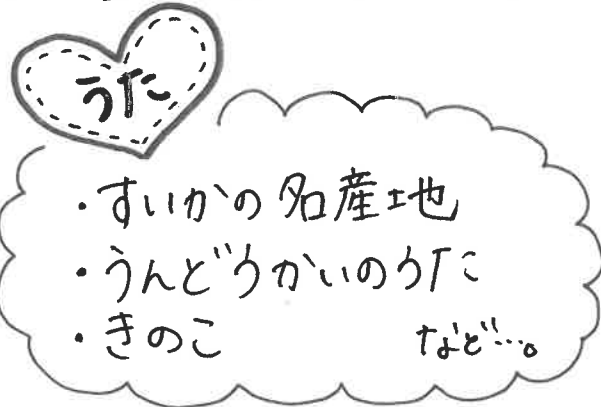 うた
・すいかの名産地
・うんどうかいのうた
・きのこ　　　　など…。